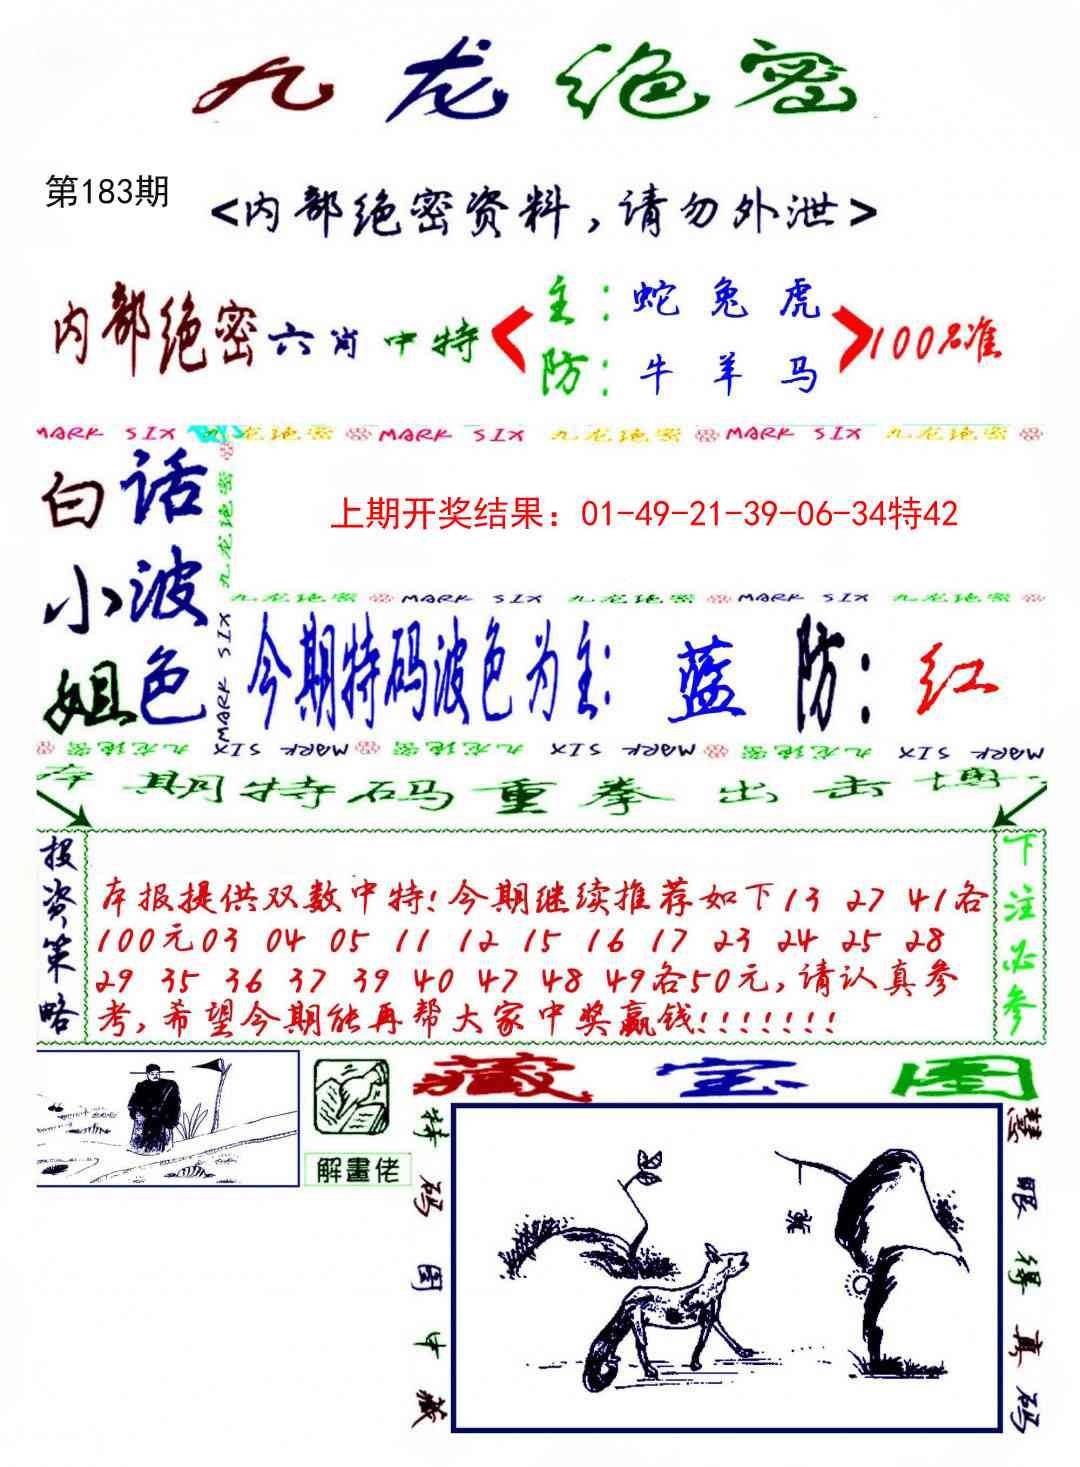 九龙绝密
第183期
<内部绝密资料,请勿外泄>
内部绝密六肖中特
主:蛇 兔 虎
防:牛 羊 马
100%准
MARK SIX 九龙绝密 MARK SIX 九龙绝密 MARK SIX 九龙绝密
九龙绝密
MARK SIX
白话
小波
姐色
上期开奖结果：01-49-21-39-06-34特42
九龙绝密 MARK SIX 九龙绝密 MARK SIX 九龙绝密
今期特码波色为主: 蓝 防: 红
九龙绝密 MARK SIX 九龙绝密 MARK SIX 九龙绝密 MARK SIX
本期特码重拳出击博
投资策略
本报提供双数中特!今期继续推荐如下13 27 41各
100元03 04 05 11 12 15 16 17 23 24 25 28
29 35 36 37 39 40 47 48 49各50元,请认真参
考,希望今期能再帮大家中奖赢钱!!!!!!!
下注必参
解畫佬
藏宝图
特码图中藏
慧眼得真码